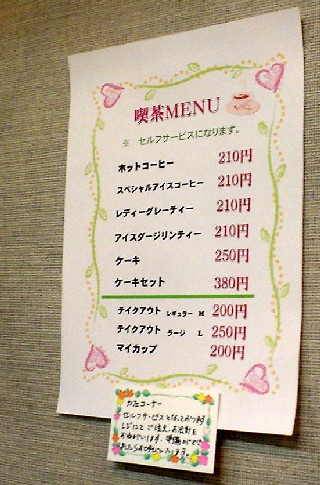 喫茶MENU
※ セルフサービスになります。
ホットコーヒー 210円
スペシャルアイスコーヒー 210円
レディーグレーティー 210円
アイスダージリンティー 210円
ケーキ 250円
ケーキセット 380円
テイクアウト レギュラー M 200円
テイクアウト ラージ L 250円
マイカップ 200円
カフェコーナー
セルフサービスとなっております
レジにてご注文、お会計を
お願いします。準備ができ